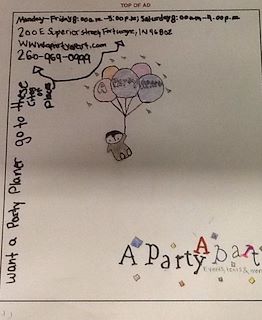 TOP OF AD
Monday-Friday 8:00a.m-5:00p.m, Saturday 8:00a.m-4:00p.m
200 E Superior street Fortwayne, IN 46802
WWW.apartyapart.com
260-969-0999
want a Party Planer go to these
Place
A Party Apart
A Party Apart
Events, tents & more